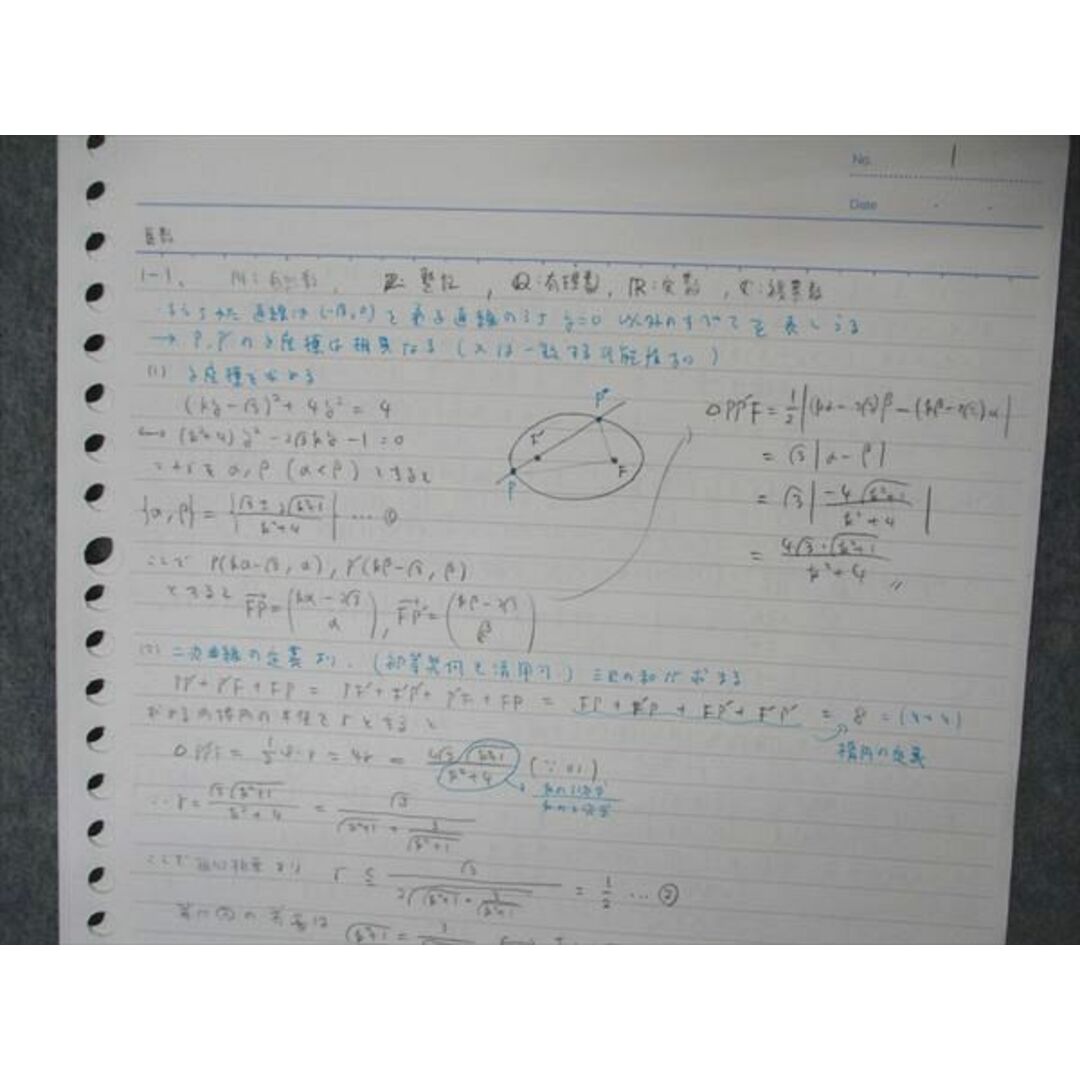 No. 1
Date
1-1. N:自然数, Z:整数, Q:有理数, R:実数, C:複素数
直線は(-√3,0)を通る直線のうちy=0以外のすべてを表しうる
→ P,P'のy座標は相異なる(xは一致する可能性あり)
(1) y座標を求める
(ky-√3)²+4y²=4
⇔ (k²+4)y²-2√3ky-1=0
α,β (α<β) とすると
{α,β}={(√3k±2√(k²+1))/(k²+4)} … ①
ここで P(kα-√3, α), P'(kβ-√3, β)
とすると FP=(kα-2√3, α), FP'=(kβ-2√3, β)
P'
F'
F
P
△PP'F=1/2|(kα-2√3)β-(kβ-2√3)α|
=√3|α-β|
=√3|-4√(k²+1)/(k²+4)|
=4√3·√(k²+1)/(k²+4)
(2) 二次曲線の定義より、(初等幾何も活用可) 三辺の和が求まる
PP'+P'F+FP = PF'+F'P'+P'F+FP = FP+F'P+FP'+F'P' = 8 = (4+4)
楕円の定義
求める内接円の半径をrとすると
△PP'F=1/2·8·r=4r=4√3√(k²+1)/(k²+4) (∵(1))
∴r=√3√(k²+1)/(k²+4)=√3/(√(k²+1)+3/√(k²+1))
ここで 相加相乗より r≦√3/(2√(√(k²+1)·3/√(k²+1)))=1/2 … ②